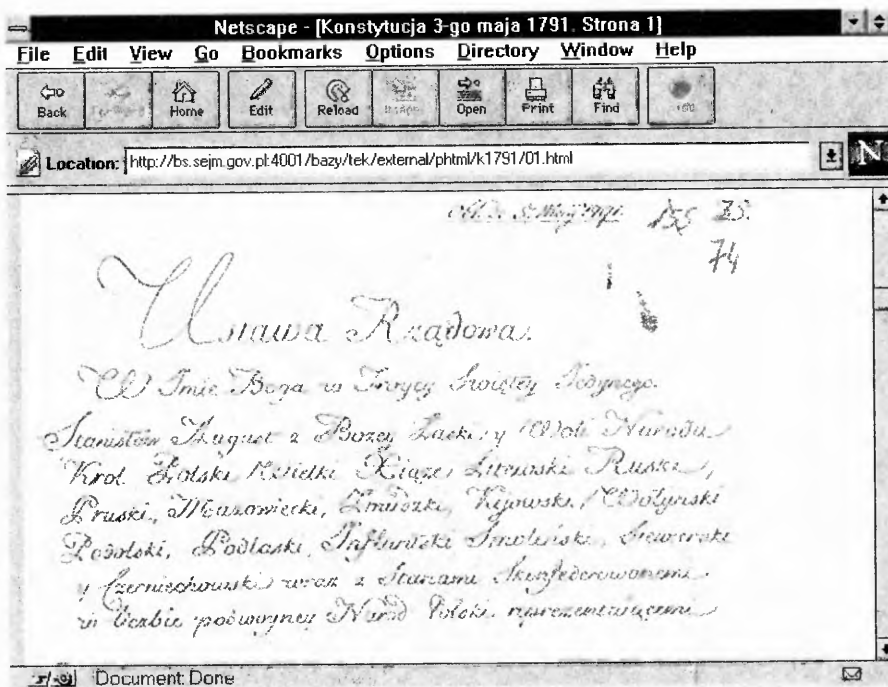 Netscape - [Konstytucja 3-go maja 1791. Strona 1]
File Edit View Go Bookmarks Options Directory Window Help
Back Home Edit Reload Open Print Find
Location: http://bs.sejm.gov.pl:4001/bazy/tek/external/phtml/k1791/01.html
155 75.
74
Ustawa Rządowa.
W Imie Boga w Troycy Swiętey Jedynego.
Stanisław August z Bozey Łaski y Woli Narodu
Krol Polski Wielki Xiąze Litewski Ruski,
Pruski, Mazowiecki, Zmudzki, Kijowski, Wołyński
Podolski, Podlaski, Inflantski Smoleński, Siewierski
y Czerniechowski wraz z Stanami Skonfederowanemi
w liczbie podwoyney Narod Polski reprezentuiącemi
Document: Done